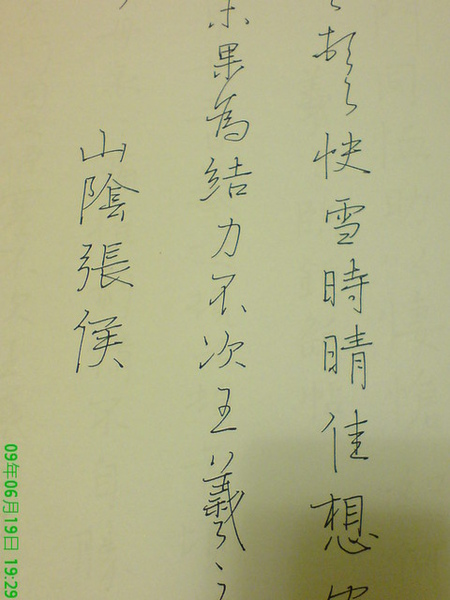 頓首快雪時晴佳想
未果為結力不次王羲之
山陰張侯
09年06月19日 19:29